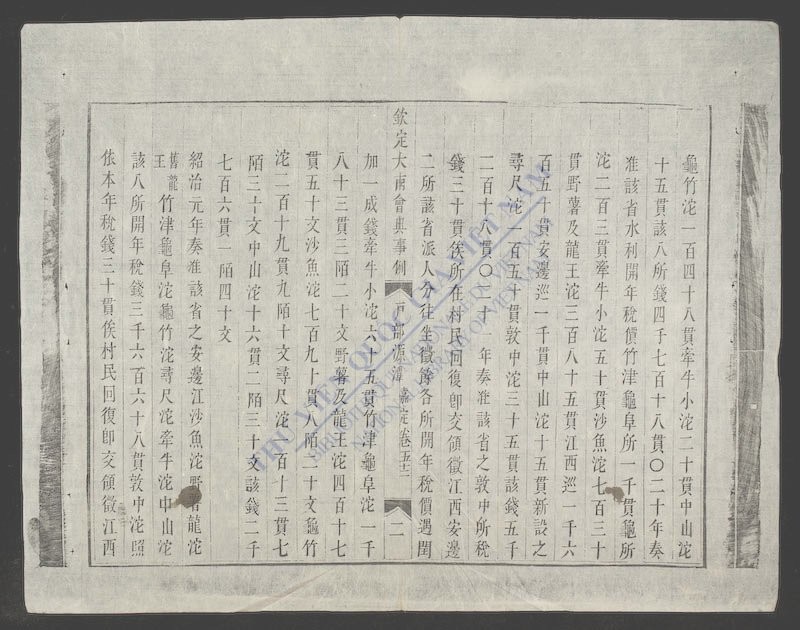 龜竹沱一百四十八貫牽牛小沱二十貫中山沱
十五貫該八所錢四千七百十八貫〇二十年奏
准該省水利開年稅價竹津龜阜所一千貫龜所
沱二百三貫牽牛小沱五十貫沙魚沱七百三十
貫野薯及龍王沱三百八十五貫江西巡一千六
百五十貫安邊巡一千貫中山沱十五貫新設之
尋尺沱一百五十貫敦中沱三十五貫該錢五千
二百十八貫〇二十一年奏准該省之敦中所稅
錢三十貫俟所在村民回復卽交領徵江西安邊
二所該省派人分往坐徵餘各所開年稅價遇閏
欽定大南會典事例 戶部源潭 嘉定卷五十二 二
加一成錢牽牛小沱六十五貫竹津龜阜沱一千
八十三貫三陌二十文野薯及龍王沱四百十七
貫五十文沙魚沱七百九十貫八陌二十文龜竹
沱二百十九貫九陌十文尋尺沱一百十三貫七
陌三十文中山沱十六貫二陌三十文該錢二千
七百六貫一陌四十文
紹治元年奏准該省之安邊江沙魚沱野薯龍沱
王舊龍竹津龜阜沱龜竹沱尋尺沱牽牛沱中山沱
該八所開年稅錢三千六百六十八貫敦中沱照
依本年稅錢三十貫俟村民回復卽交領徵江西
THƯ VIỆN QUỐC GIA VIỆT NAM
BIBLIOTHÈQUE NATIONALE DU VIETNAM
NATIONAL LIBRARY OF VIETNAM